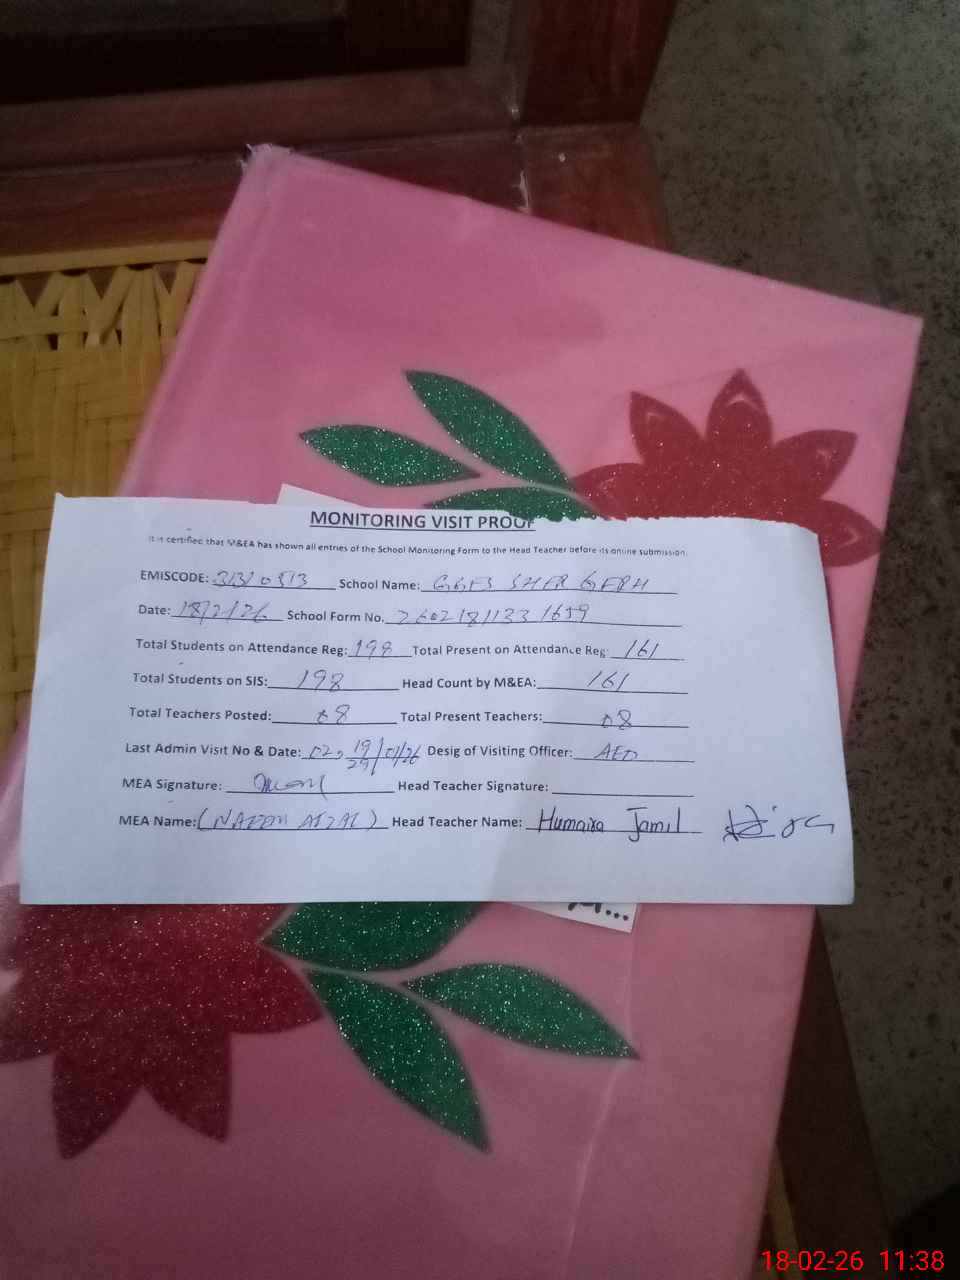 MONITORING VISIT PROOF
It is certified that M&EA has shown all entries of the School Monitoring Form to the Head Teacher before its online submission.
EMISCODE: 31310313 School Name: GGES SHER GERH
Date: 18/2/26 School Form No. 26021811331659
Total Students on Attendance Reg: 198 Total Present on Attendance Reg: 161
Total Students on SIS: 198 Head Count by M&EA: 161
Total Teachers Posted: 08 Total Present Teachers: 08
Last Admin Visit No & Date: 02, 19/29/01/26 Desig of Visiting Officer: AEO
MEA Signature: Head Teacher Signature:
MEA Name: (NAEEM AFZAL) Head Teacher Name: Humaira Jamil
18-02-26 11:38